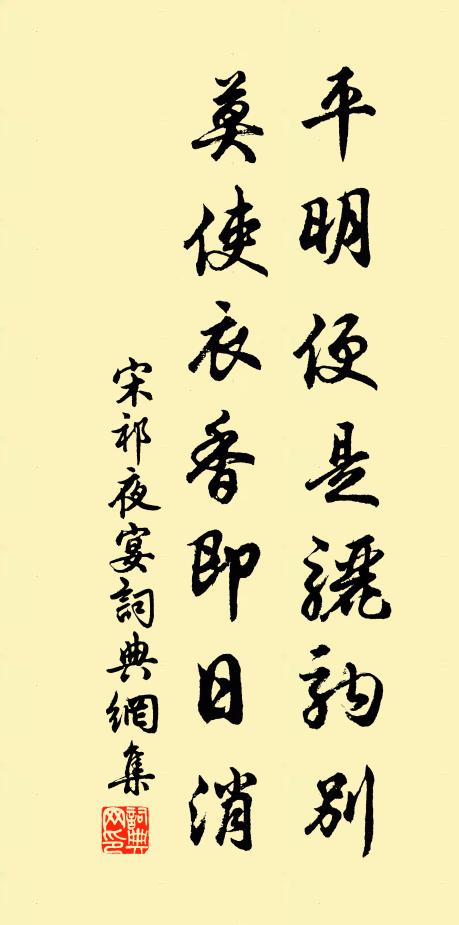 平明便是驪駒別
莫使衣香即日消
宋祁夜宴詞典網集
詞典網印